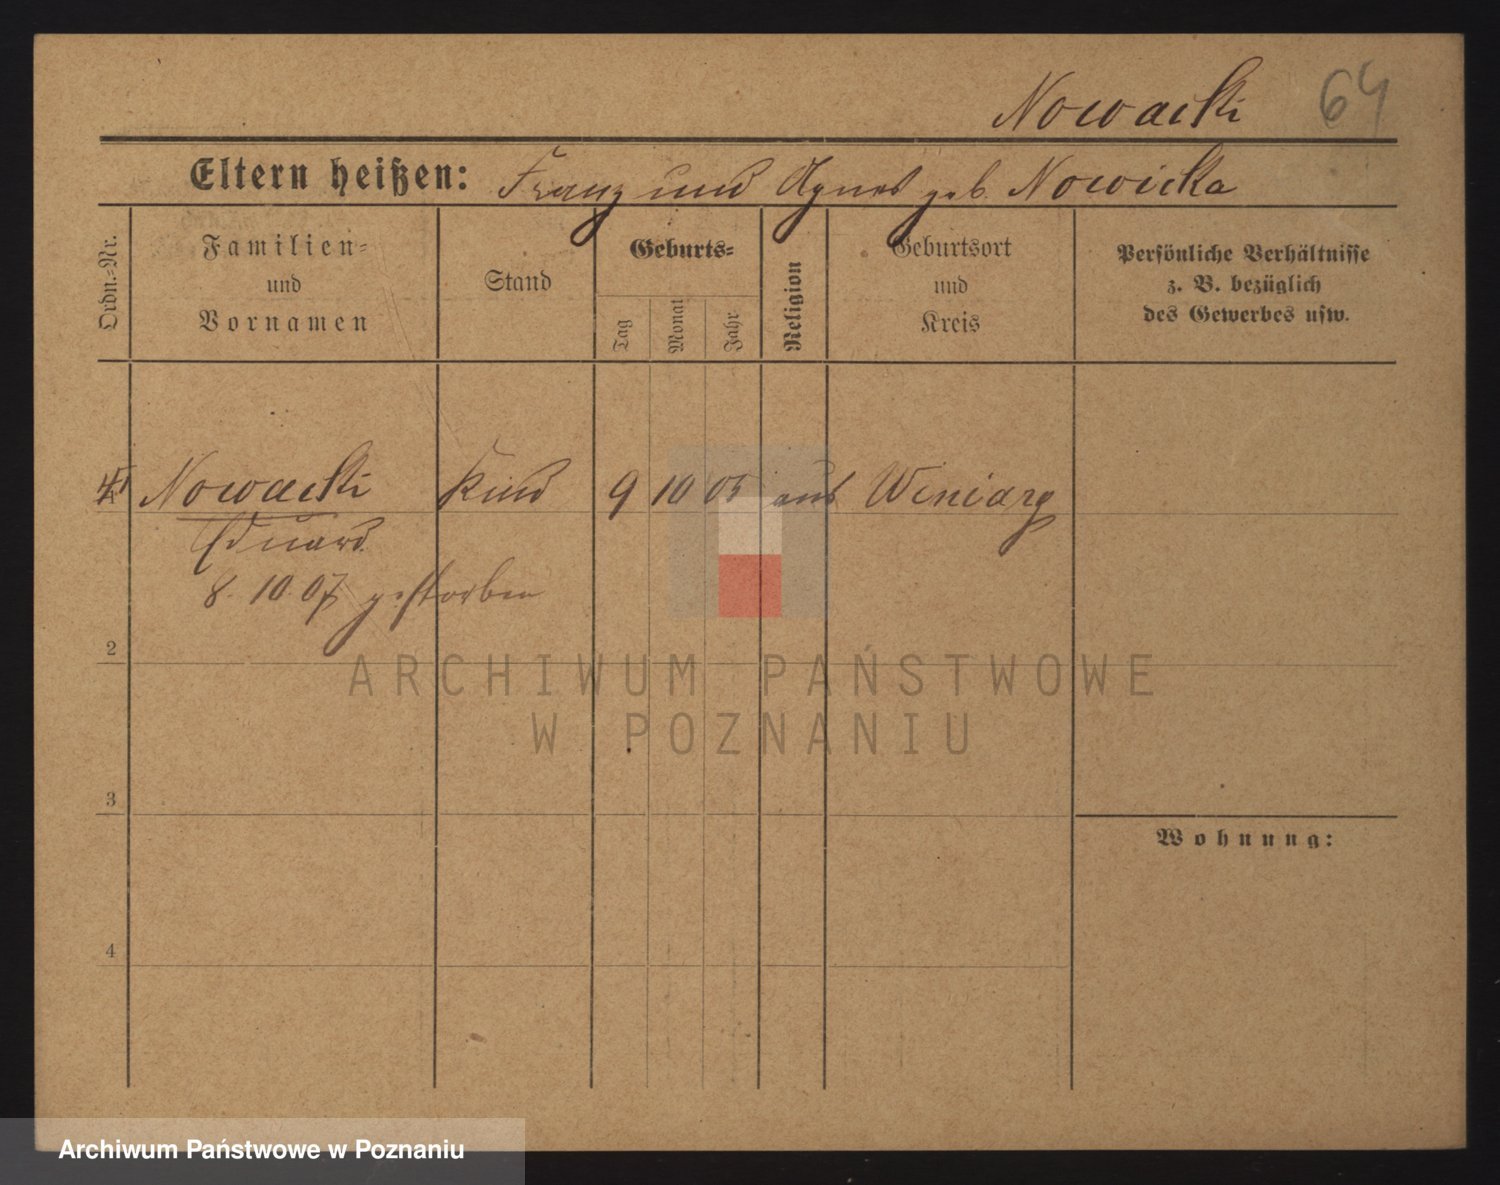 Nowacki 64
Eltern heißen: Franz und Agnes geb. Nowicka
Ordn.-Nr.
Familien-
und
Vornamen
Stand
Geburts-
Tag
Monat
Jahr
Religion
Geburtsort
und
Kreis
Persönliche Verhältnisse
z. B. bezüglich
des Gewerbes usw.
Nowacki Kind 9 10 05 aus Winiary
Eduard
8. 10. 07 gestorben
2
3
4
Wohnung:
ARCHIWUM PAŃSTWOWE
W POZNANIU
Archiwum Państwowe w Poznaniu